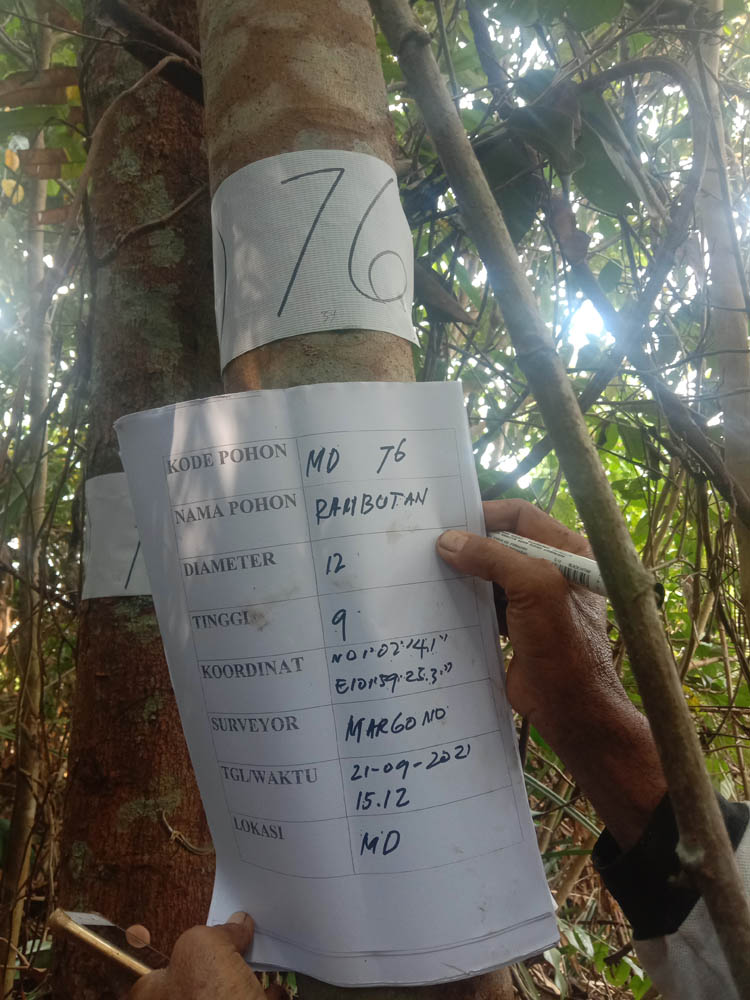 76
KODE POHON MD 76
NAMA POHON RAMBUTAN
DIAMETER 12
TINGGI 9
KOORDINAT N01°02'14,1"
E101°59'25.3"
SURVEYOR MARGONO
TGL/WAKTU 21-09-2021
15.12
LOKASI MD